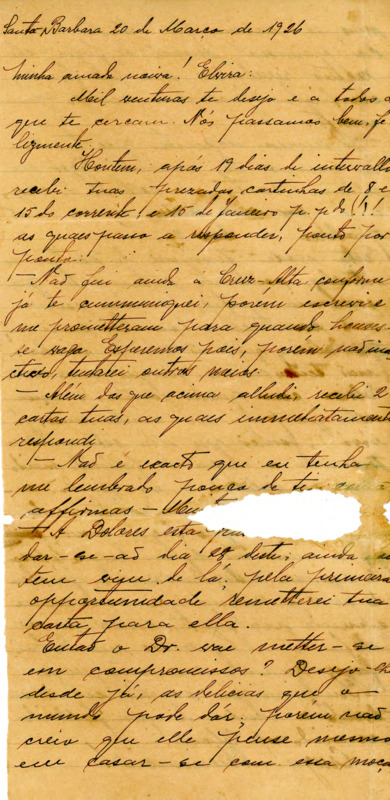 Santa Barbara 20 de Março de 1926
Minha amada noiva! Elvira:
Mil venturas te desejo e a todos
que te cercam. Nós passamos bem, fe
lizmente.
Hontem, após 19 dias de intervallo
recebi tuas prezadas cartinhas de 8 e
15 do corrente, e 15 de Janeiro p. pdo!!!
as quaes passo a responder, ponto por
ponto:
— Não fui ainda á Cruz-Alta conforme
já te communiquei, porem
me prometteram para quando
se vaga. Esperemos pois, porém
tentarei outros meios.
— Além das que acima alludi, recebi 2
cartas tuas, as quaes immediatamente
respondi.
— Não é exacto que eu tenha
me lembrado pouco de ti,
affirmas —
— A Dolores está
dar-se-ao dia deste; ainda
tem de lá; pela primeira
opportunidade remetterei tua
carta para ella.
Então o Dr. vae metter-se
em compromissos? Desejo-
desde já, as delicias que o
mundo pode dár, porém não
creio que elle pense mesmo
em casar-se com essa moça